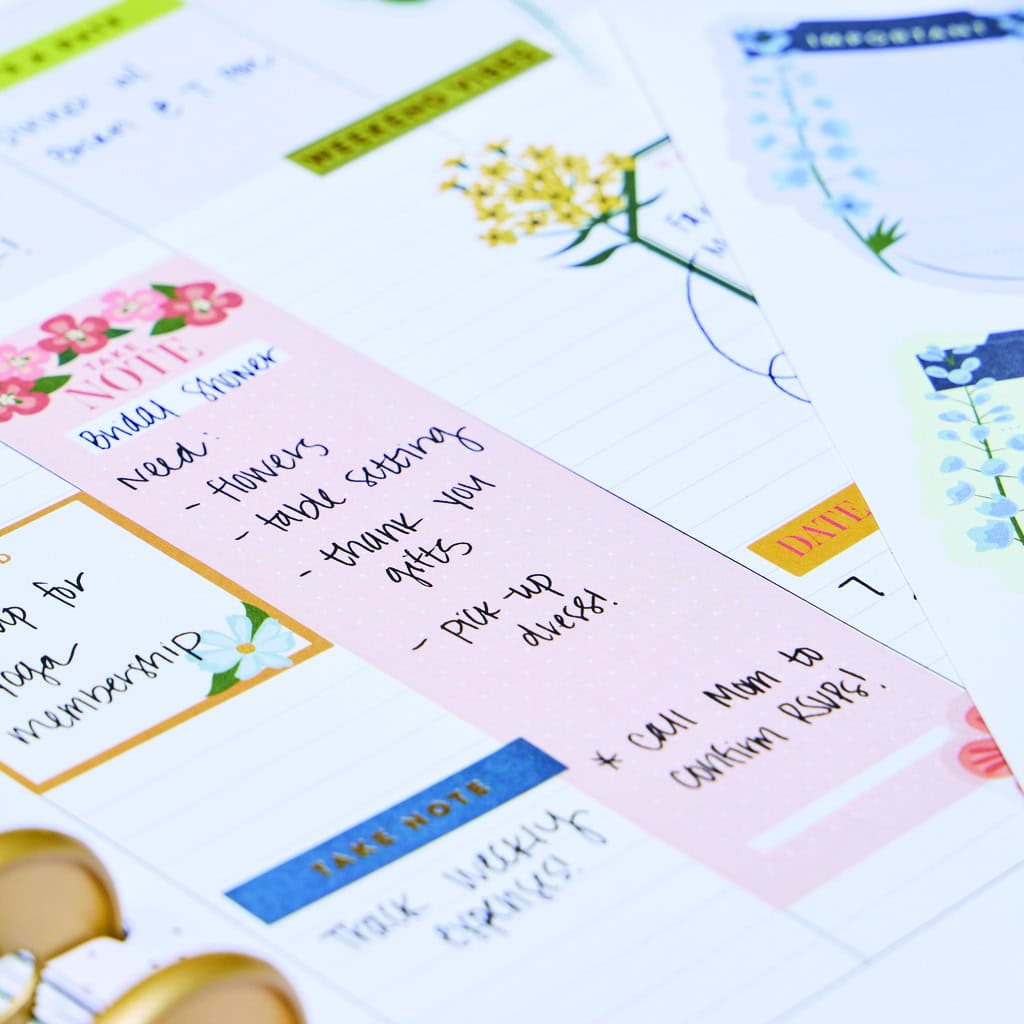 Dinner w/
Brian @ 7
WEEKEND VIBES
IMPORTANT
TAKE
NOTE
Bridal Shower
Need:
- flowers
- table setting
- thank you
gifts
- pick-up
dress!
* call Mom to
confirm RSVPs!
for
Yoga
membership
DATE
7
TAKE NOTE
Track weekly
expenses!